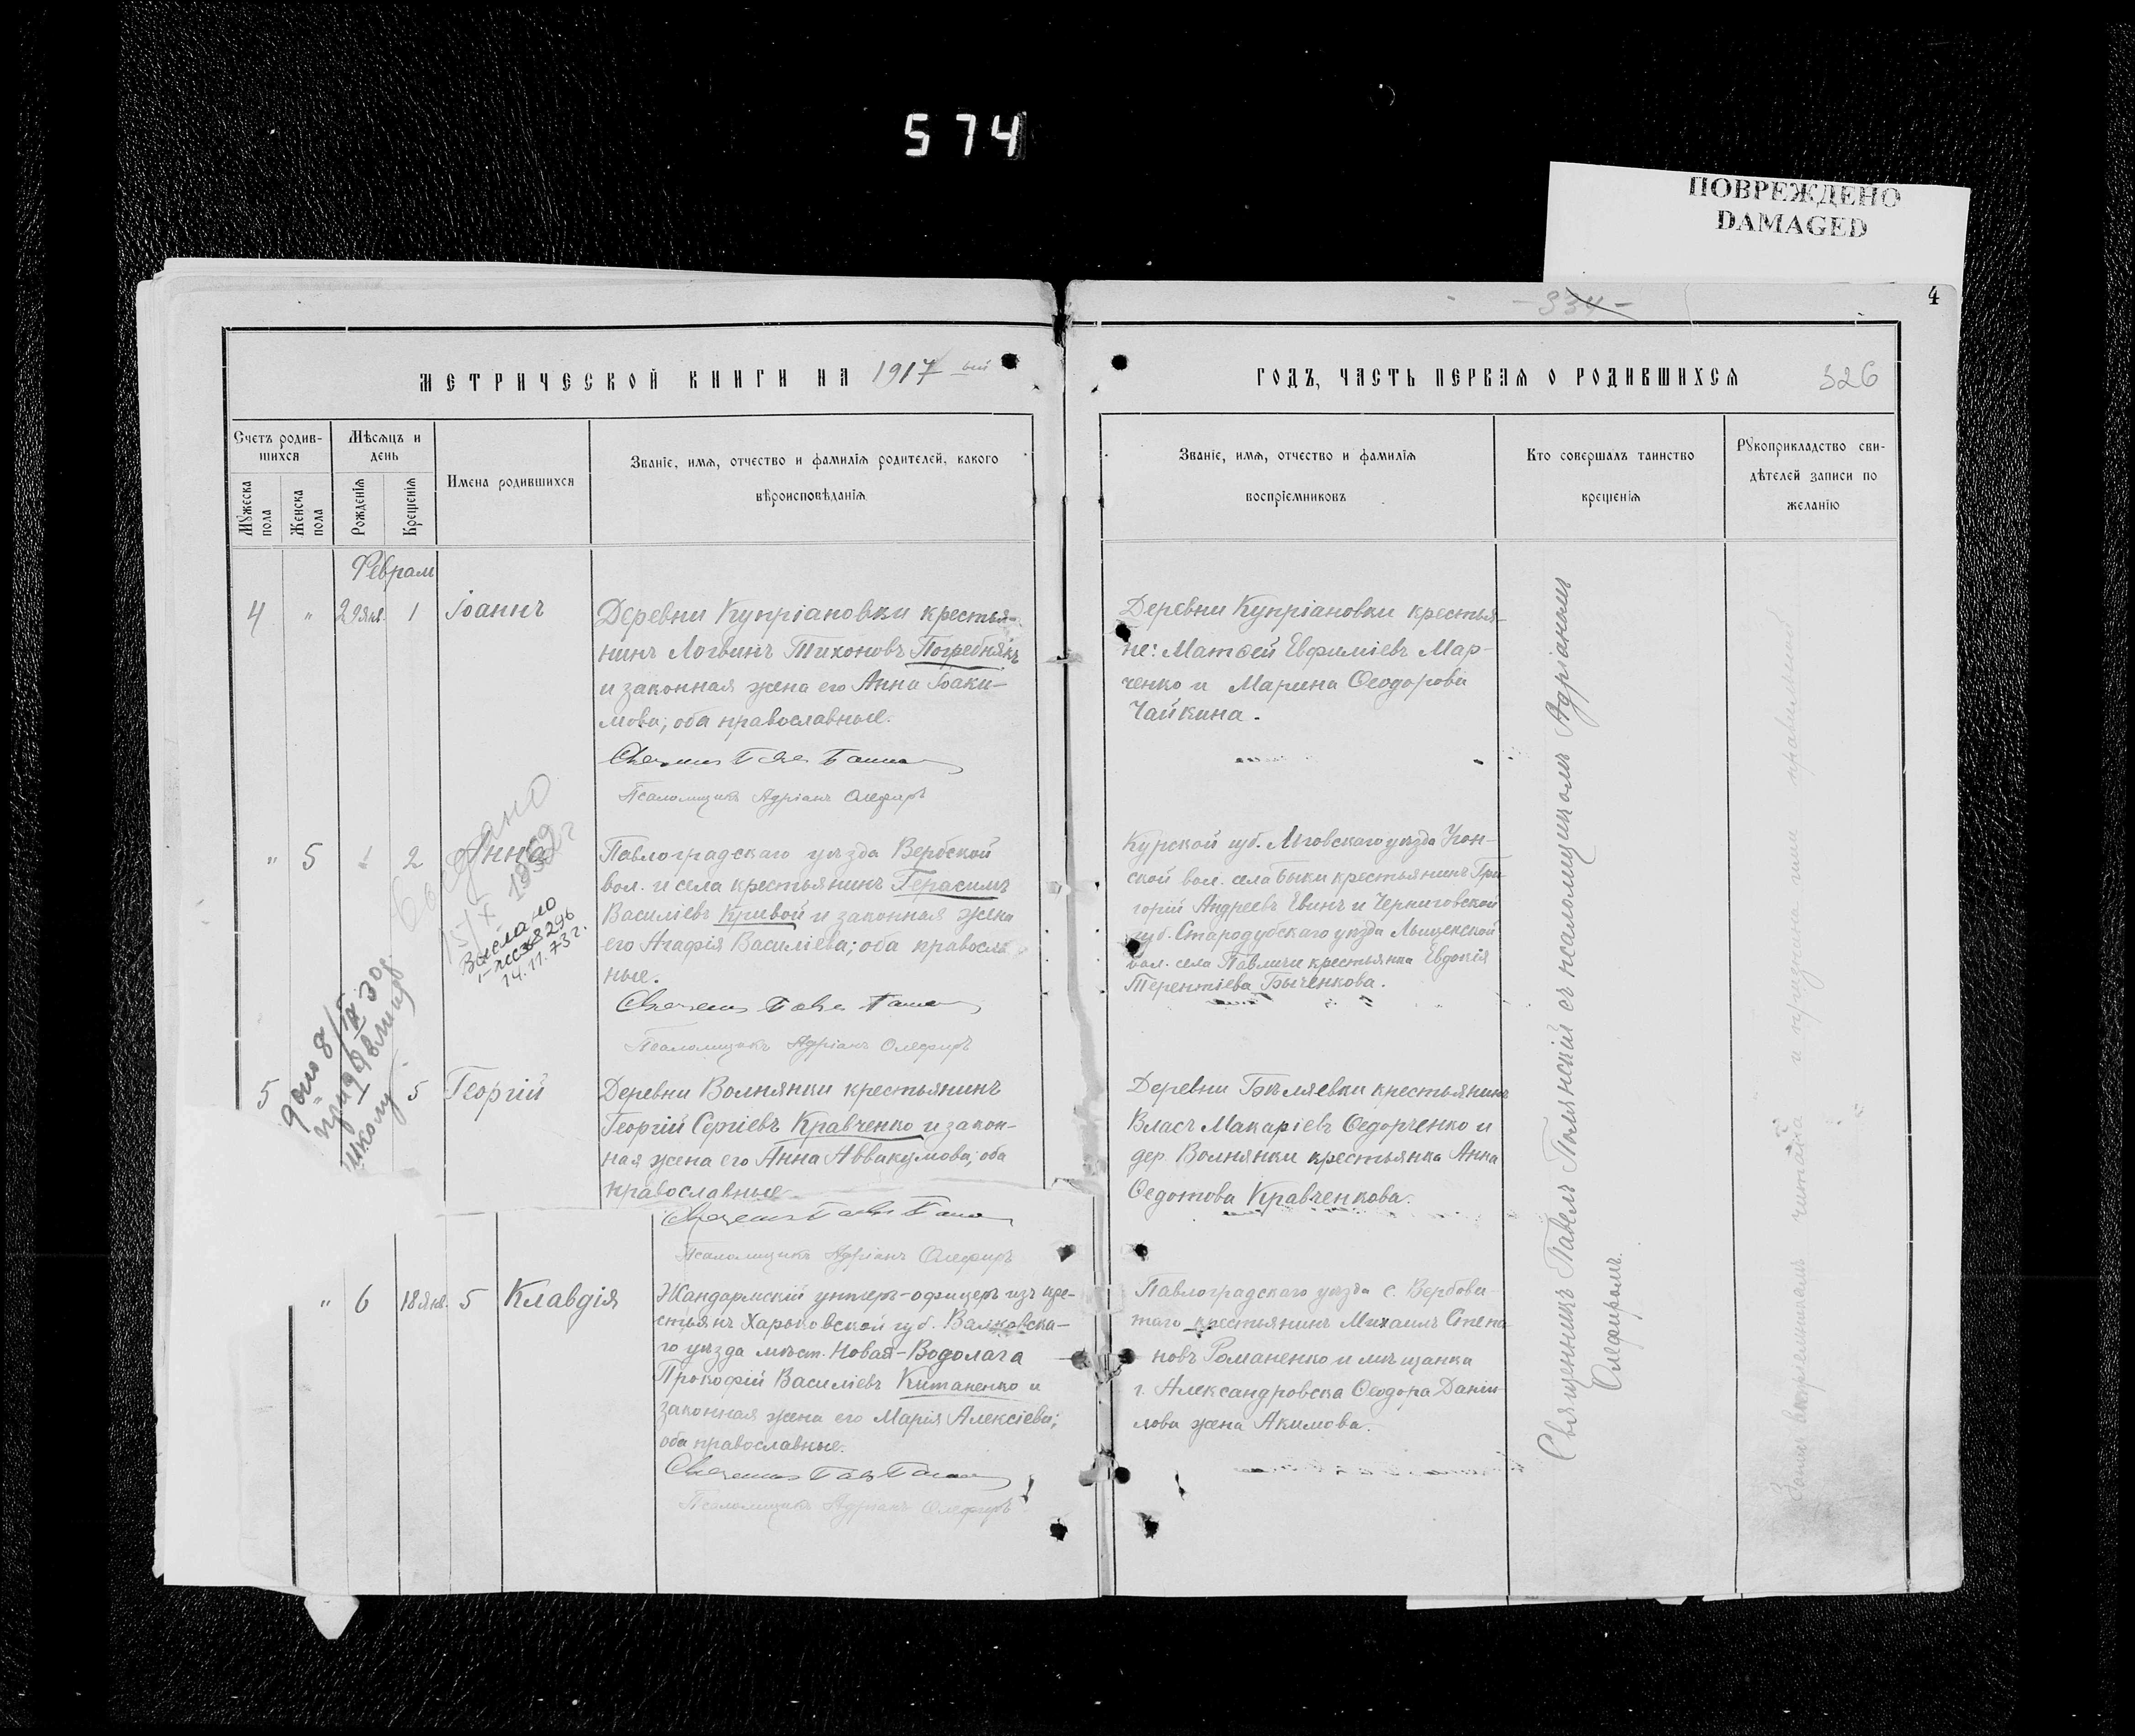 574
ПОВРЕЖДЕНО
DAMAGED
4
- 334 -
МЕТРИЧЕСКОЙ КНИГИ НА 1917 ый
ГОДЪ, ЧАСТЬ ПЕРВАЯ О РОДИВШИХСЯ
326
Счетъ родив-
шихся
Мѣсяцъ и
день
Мужеска
пола
Женска
пола
Рожденія
Крещенія
Имена родившихся
Званіе, имя, отчество и фамилія родителей, какого
вѣроисповѣданія
Званіе, имя, отчество и фамилія
воспріемниковъ
Кто совершалъ таинство
крещенія
Рукоприкладство сви-
дѣтелей записи по
желанію
Февраль
4 " 29 янв. 1 Іоаннъ
Деревни Купріановки крестья-
нинъ Логвинъ Тихоновъ Погребнякъ
и законная жена его Анна Іоаки-
мова; оба православные.
Псаломщикъ Адріанъ Олефиръ
Деревни Купріановки крестья-
не: Матѳей Евфиміевъ Мар-
ченко и Марина Ѳеодорова
Чайкина.
" 5 " 2 Анна
15/X 1939 г
Выслано
14.11.73 г.
Павлоградскаго уѣзда Вербской
вол. и села крестьянинъ Герасимъ
Василіевъ Кривой и законная жена
его Агафія Василіева; оба правосла
ные.
Псаломщикъ Адріанъ Олефиръ
Курской губ. Льговскаго уѣзда
ской вол. села Быки крестьянинъ Гри
горій Андреевъ Евинъ и Черниговской
губ. Стародубскаго уѣзда
вол. села Павличи крестьянка Евдокія
Терентіева Быченкова.
школу
5 " 5 Георгій
Деревни Волнянки крестьянинъ
Георгій Сергіевъ Кравченко и закон-
ная жена его Анна Аввакумова; оба
православные
Псаломщикъ Адріанъ Олефиръ
Деревни Бѣляевки крестьянинъ
Власъ Макаріевъ Ѳедорченко и
дер. Волнянки крестьянка Анна
Ѳедотова Кравченкова.
" 6 18 янв. 5 Клавдія
Жандармскій унтеръ-офицеръ изъ кре-
стьянъ Харьковской губ. Валковска-
го уѣзда мѣст. Новая-Водолага
Прокофій Василіевъ Китаненко и
законная жена его Марія Алексіева;
оба православные.
Псаломщикъ Адріанъ Олефиръ
Павлоградскаго уѣзда с. Вербова
таго крестьянинъ Михаилъ Степа
новъ Романенко и мѣщанка
г. Александровска Ѳеодора Даніи
лова жена Акимова.
Священникъ Павелъ Полянскій съ псаломщикомъ Адріаномъ
Олефиромъ.